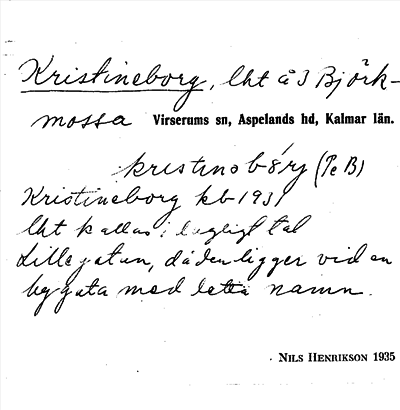 Kristineborg, lht å 3 Björk-
mossa Virserums sn, Aspelands hd, Kalmar län.
kristinobórj (Pe B)
Kristineborg kb 1931
lht kallas i dagligt tal
Lillegatan, då den ligger vid en
bygata med detta namn.
NILS HENRIKSON 1935